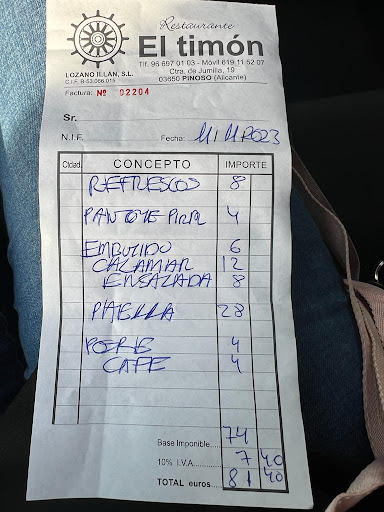 Restaurante
El timón
Tlf. 96 697 01 03 - Móvil 619 11 52 07
LOZANO ILLÁN, S.L.
Ctra. de Jumilla, 19
C.I.F. B-53.066.015
03650 PINOSO (Alicante)
Factura: Nº 02204
Sr.
N.I.F. Fecha: 11/11/2023
Ctdad. CONCEPTO IMPORTE
REFRESCOS 8
PAN TOTE 4
EMBUTIDO 6
CALAMAR 12
ENSALADA 8
PAELLA 28
POSTRE 4
CAFE 4
Base Imponible..... 74
10% I.V.A. ..... 7 40
TOTAL euros..... 81 40